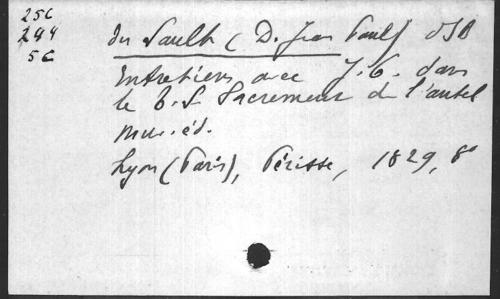 25C
244
5C
du Sault (D. Jean Paul) OSB
Entretiens avec J.C. dans
le T.S. Sacrement de l'autel
nouv. éd.
Lyon (Paris), Périsse, 1829, 8°